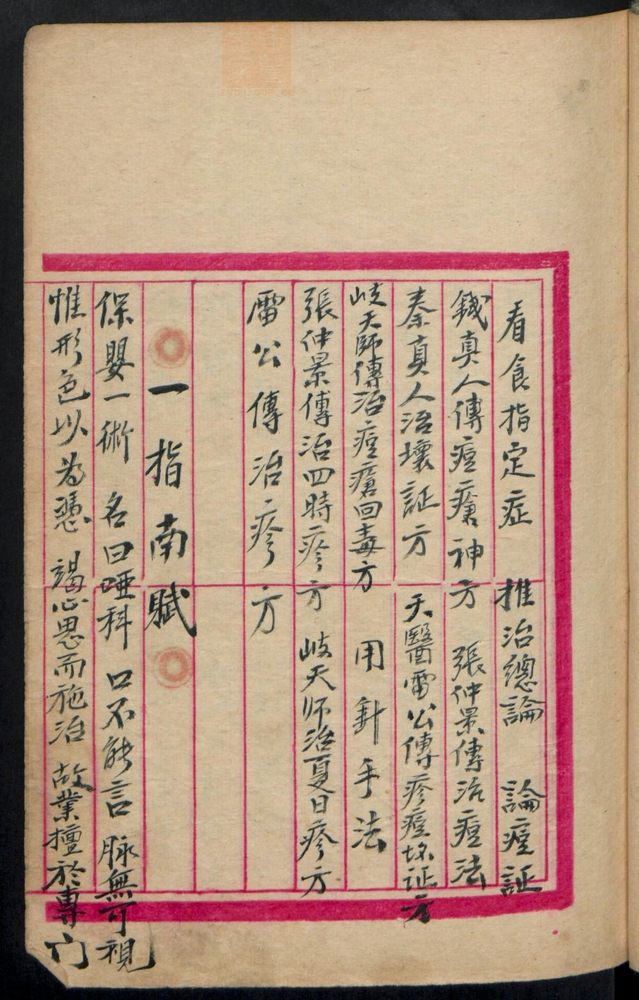 看食指定症　推治總論　論痘証
錢真人傳痘瘡神方　張仲景傳治痘法
秦真人治壞証方　天醫雷公傳疹痘坏证方
岐天師傳治痘瘡回毒方　用針手法
張仲景傳治四時疹方　岐天师治夏日疹方
雷公傳治疹方
一指南賦
保嬰一術　名曰啞科　口不能言　脉無可視
惟形色以為憑　竭心思而施治　故業擅於專门